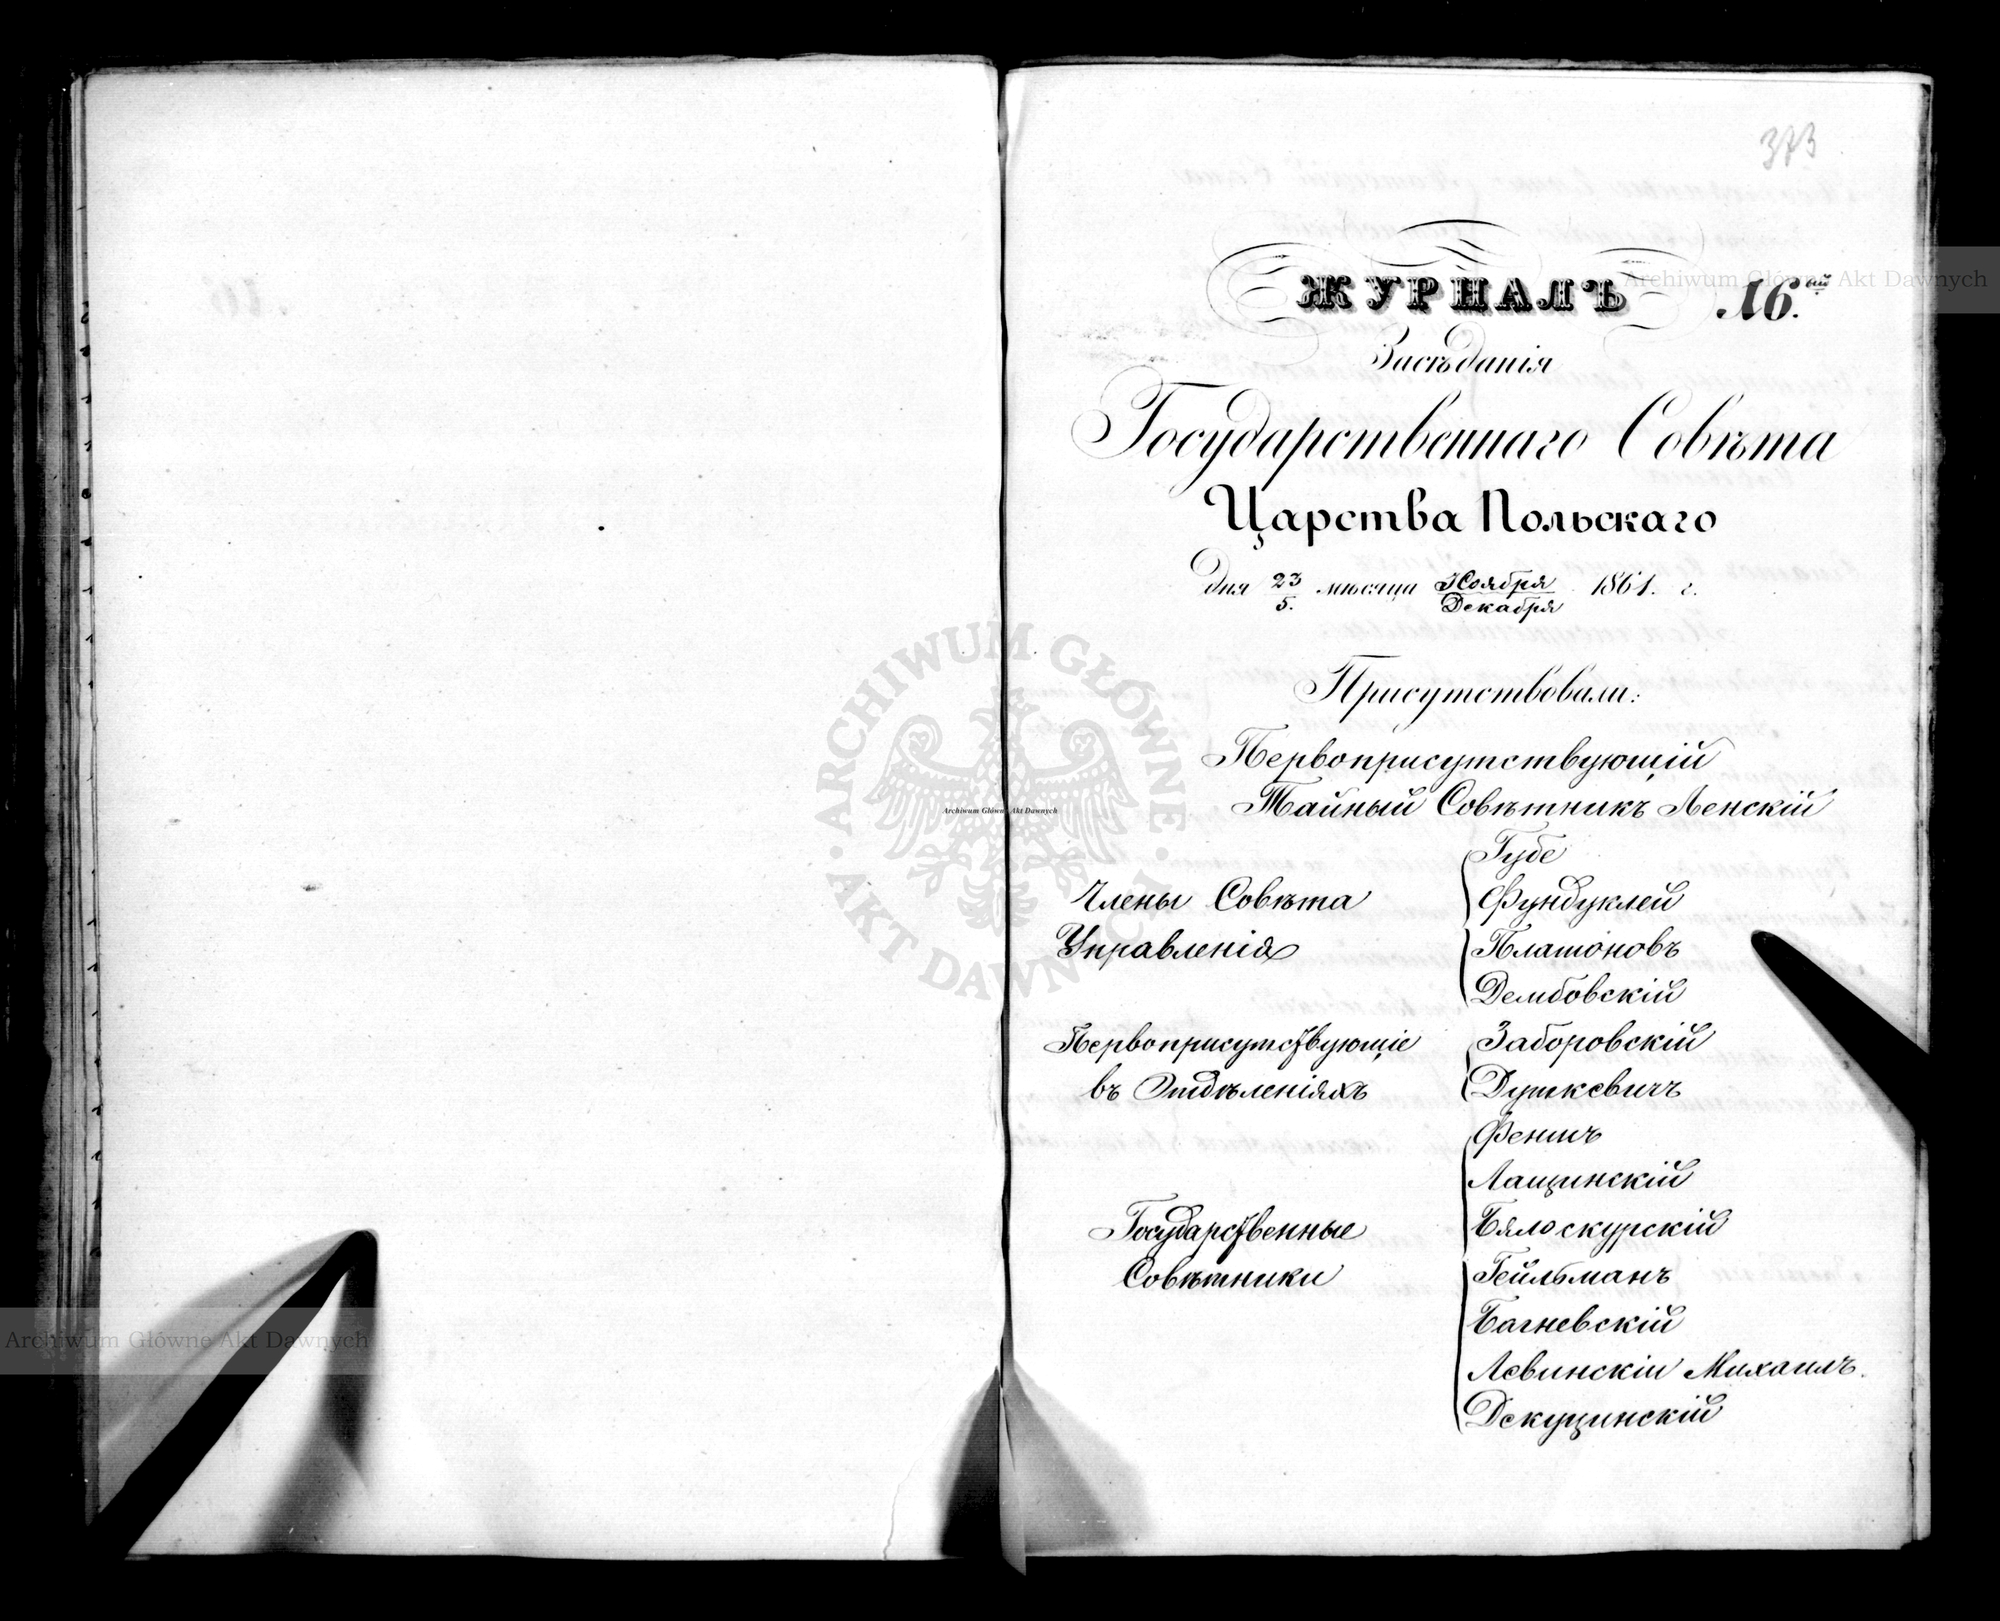 373
ЖУРНАЛЪ 16.ый
Засѣданія
Государственнаго Совѣта
Царства Польскаго
дня 23/5. мѣсяца Ноября/Декабря 1861. г.
Присутствовали:
Первоприсутствующій
Тайный Совѣтникъ Ленскій
Члены Совѣта
Управленія
Губе
Фундуклей
Платоновъ
Дембовскій
Первоприсутствующіе
въ Отдѣленіяхъ
Заборовскій
Дуткевичъ
Государственные
Совѣтники
Феншъ
Лащинскій
Бялоскурскій
Гейльманъ
Багневскій
Левинскій Михаилъ.
Декуцинскій
ARCHIWUM GŁÓWNE AKT DAWNYCH
Archiwum Główne Akt Dawnych
Archiwum Główne Akt Dawnych
Archiwum Główne Akt Dawnych